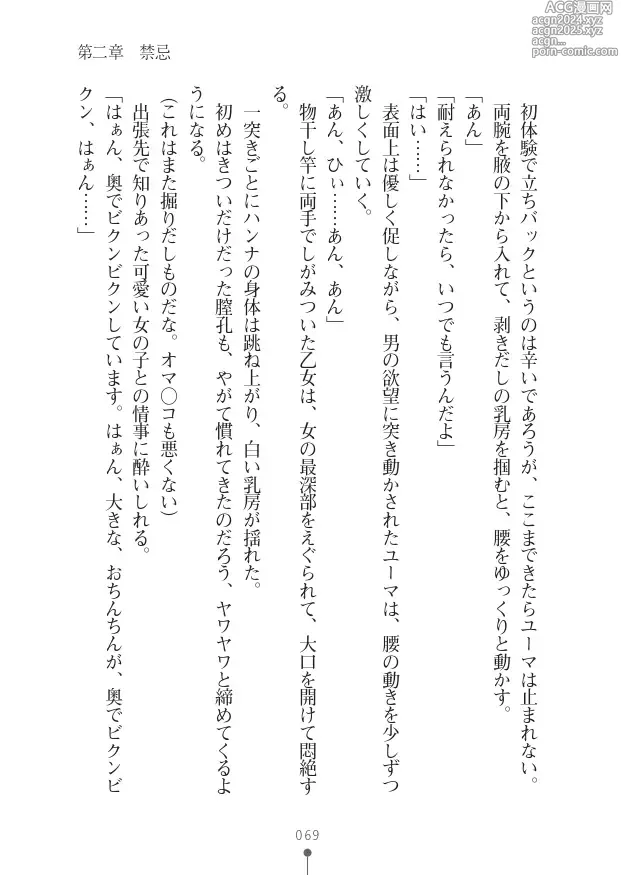 ACG漫画网
acgn2024.xyz
acgn2025.xyz
porn-comic.com
第二章　禁忌
　初体験で立ちバックというのは辛いであろうが、ここまできたらユーマは止まれない。
　両腕を腋の下から入れて、剥きだしの乳房を掴むと、腰をゆっくりと動かす。
「あん」
「耐えられなかったら、いつでも言うんだよ」
「はい……」
　表面上は優しく促しながら、男の欲望に突き動かされたユーマは、腰の動きを少しずつ
激しくしていく。
「あん、ひぃ……あん、あん」
　物干し竿に両手でしがみついた乙女は、女の最深部をえぐられて、大口を開けて悶絶す
る。
　一突きごとにハンナの身体は跳ね上がり、白い乳房が揺れた。
　初めはきついだけだった膣孔も、やがて慣れてきたのだろう、ヤワヤワと締めてくるよ
うになる。
（これはまた掘りだしものだな。オマ〇コも悪くない）
　出張先で知りあった可愛い女の子との情事に酔いしれる。
「はぁん、奥でビクンビクンしています。はぁん、大きな、おちんちんが、奥でビクンビ
クン、はぁん……」
069